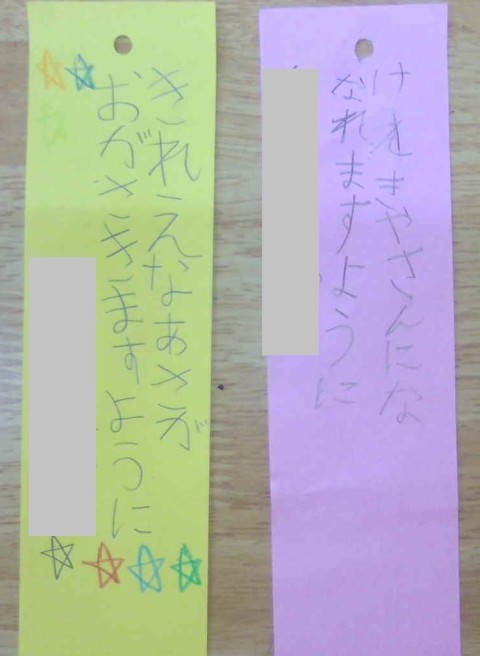 けえきやさんにな
なれますように
きれえなあさが
おがさきますように